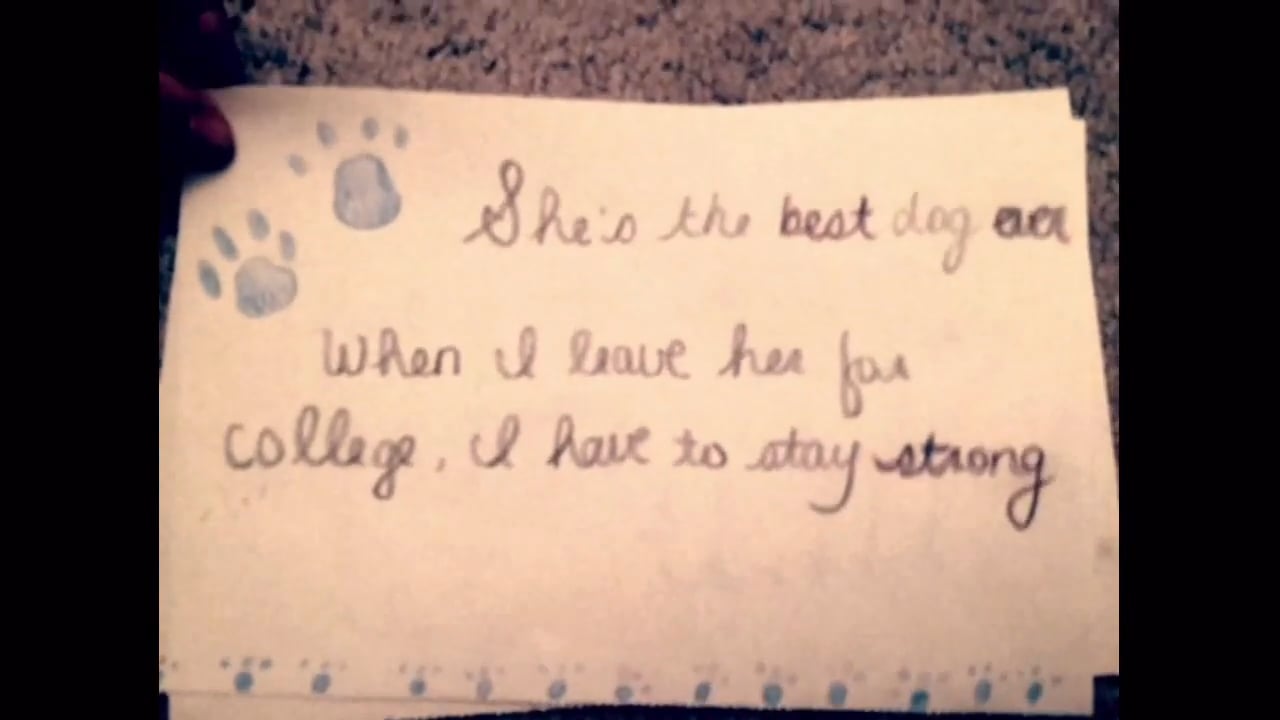 She's the best dog ever
When I leave her for
college, I have to stay strong